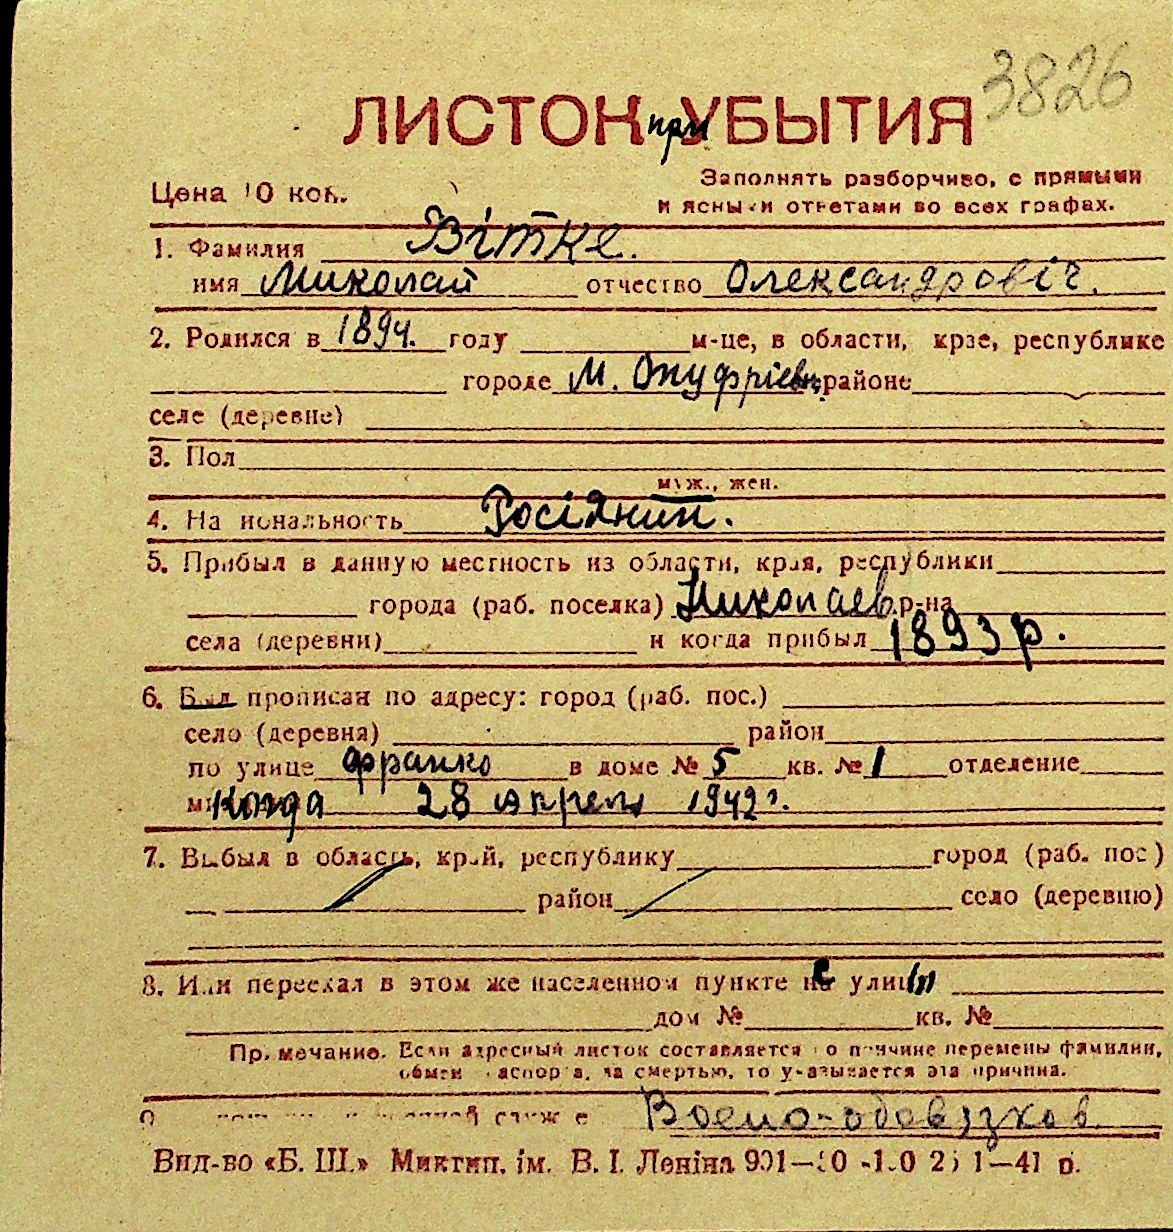 3826
ЛИСТОК при УБЫТИЯ
Цена 10 коп.
Заполнять разборчиво, с прямыми
и ясными ответами во всех графах.
1. Фамилия Вітке.
имя Миколай отчество Олександровіч.
2. Родился в 1894. году м-це, в области, крае, республике
городе М. Онуфріевк, районе
селе (деревне)
3. Пол
муж., жен.
4. Национальность Росіянин.
5. Прибыл в данную местность из области, края, республики
города (раб. поселка) Николаев р-на
села (деревни) и когда прибыл 1893 р.
6. Был прописан по адресу: город (раб. пос.)
село (деревня) район
по улице Франко в доме № 5 кв. № 1 отделение
Когда 28 апреля 1942 г.
7. Выбыл в область, край, республику город (раб. пос)
район село (деревню)
8. Или переехал в этом же населенном пункте с улиц
дом № кв. №
Примечание. Если адресный листок составляется по причине перемены фамилии,
обмен паспорта, за смертью, то указывается эта причина.
Воено-обовязков.
Вид-во «Б. Ш.» Миктип. ім. В. І. Леніна 1—41 р.